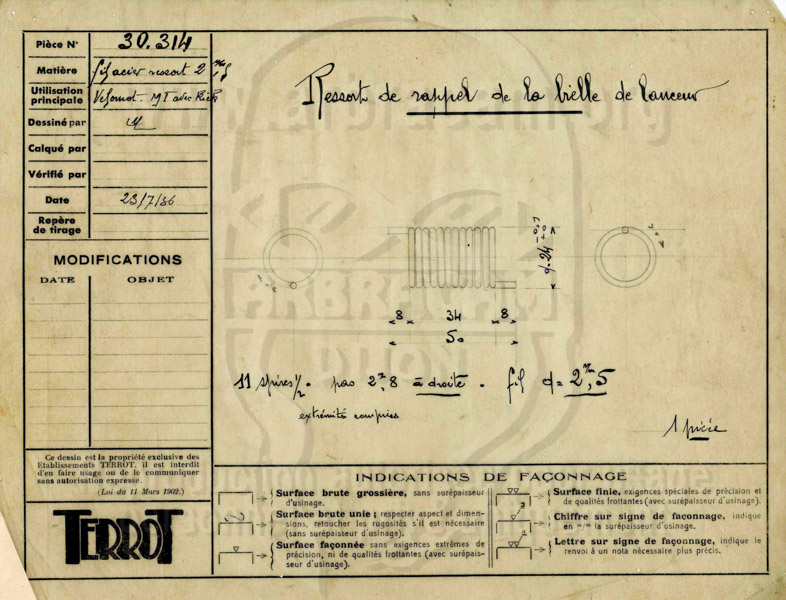 Pièce N° 30.314
Matière fil acier ressort 2 m/m 5
Utilisation
principale Velomot. MT avec Kick
Dessiné par
Calqué par
Vérifié par
Date 23/7/36
Repère
de tirage
MODIFICATIONS
DATE OBJET
Ce dessin est la propriété exclusive des
Etablissements TERROT, il est interdit
d'en faire usage ou de le communiquer
sans autorisation expresse.
(Loi du 11 Mars 1902.)
TERROT
Ressort de rappel de la bielle de lanceur
d. 24 -0,7 +0
8 34 8
50
11 spires 1/2. pas 2m/m,8 à droite. fil d= 2m/m,5
extrémités comprises
1 pièce
ARBRACAM
DIJON
INDICATIONS DE FAÇONNAGE
Surface brute grossière, sans surépaisseur
d'usinage.
Surface brute unie ; respecter aspect et dimen-
sions, retoucher les rugosités s'il est nécessaire
(sans surépaisseur d'usinage).
Surface façonnée sans exigences extrêmes de
précision, ni de qualités frottantes (avec surépais-
seur d'usinage).
Surface finie, exigences spéciales de précision et
de qualités frottantes (avec surépaisseur d'usinage).
Chiffre sur signe de façonnage, indique
en m/m la surépaisseur d'usinage.
Lettre sur signe de façonnage, indique le
renvoi à un nota nécessaire plus précis.